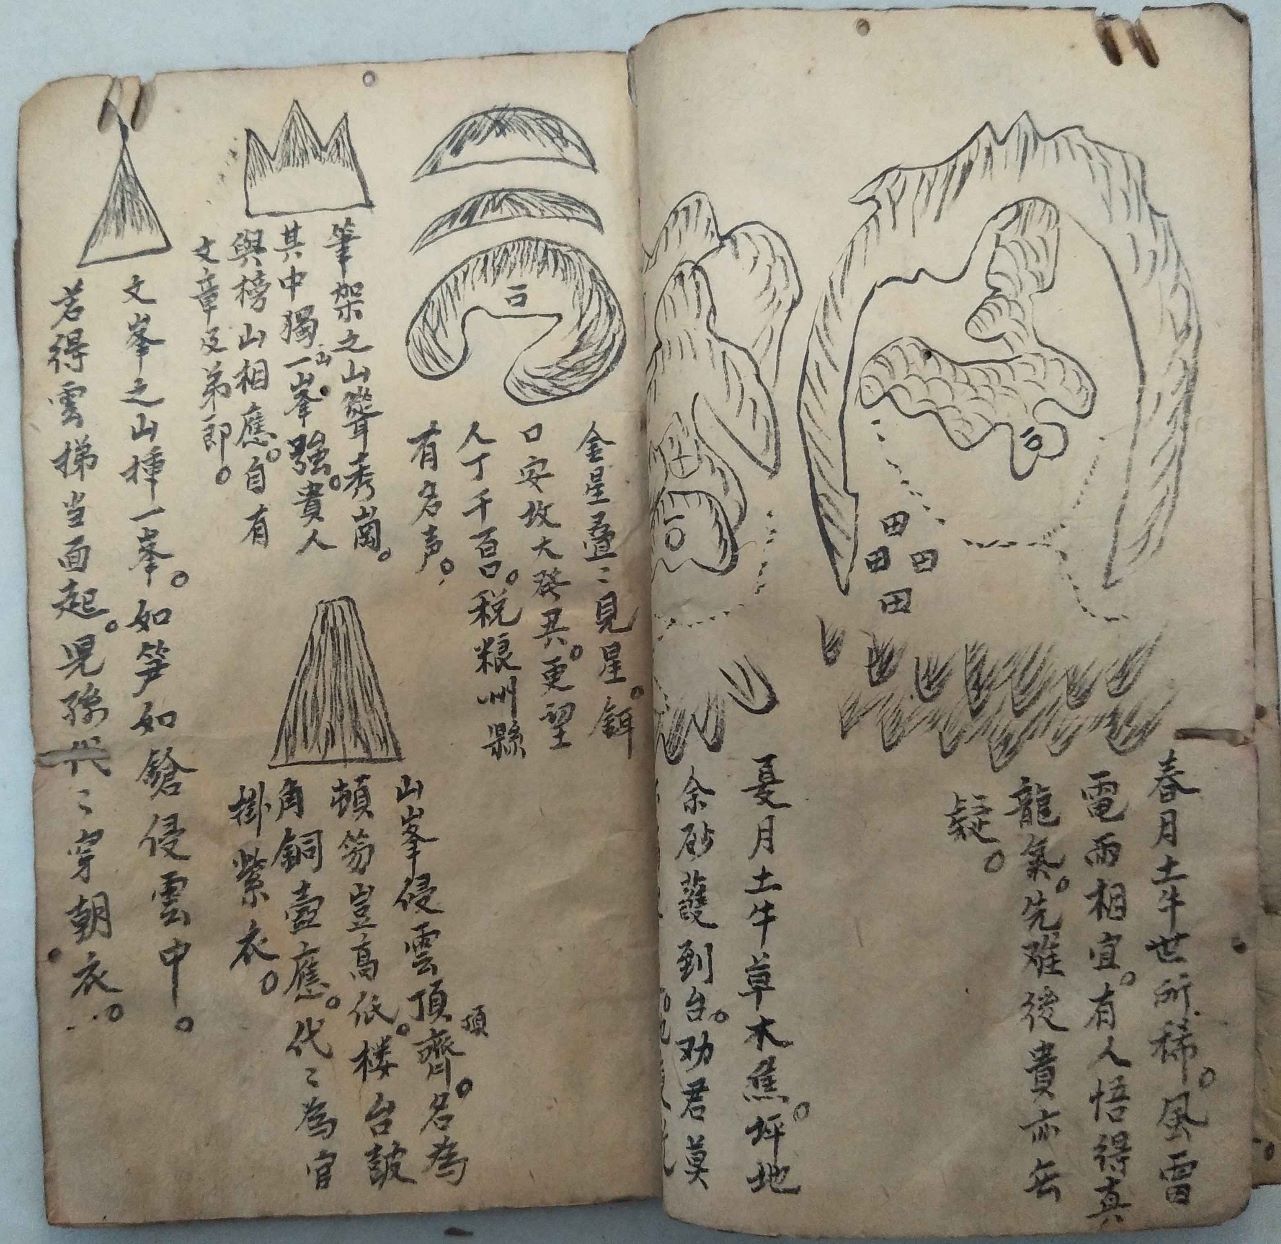 春月土牛世所稀。風雷
電雨相宜。有人悟得真
龍氣。先难後貴亦无
疑。
田
田
田
田
夏月土牛草木焦。坪地
余砂護到台。劝君莫
金星叠〻見星。餌
口安坟大發丑。更望
人丁千百口。税粮州縣
有名声。
筆架之山聳秀崗。
其中獨一峯強。貴人
山
與榜山相應。自有
文章及弟郎。
山峯侵雲頂齊。名為
頂
頓笏豈高低。楼台鼓
角銅壺應。代〻為官
掛紫衣。
文峯之山挿一峯。如笋如鎗侵雲中。
若得雲梯当面起。児孫代〻穿朝衣。